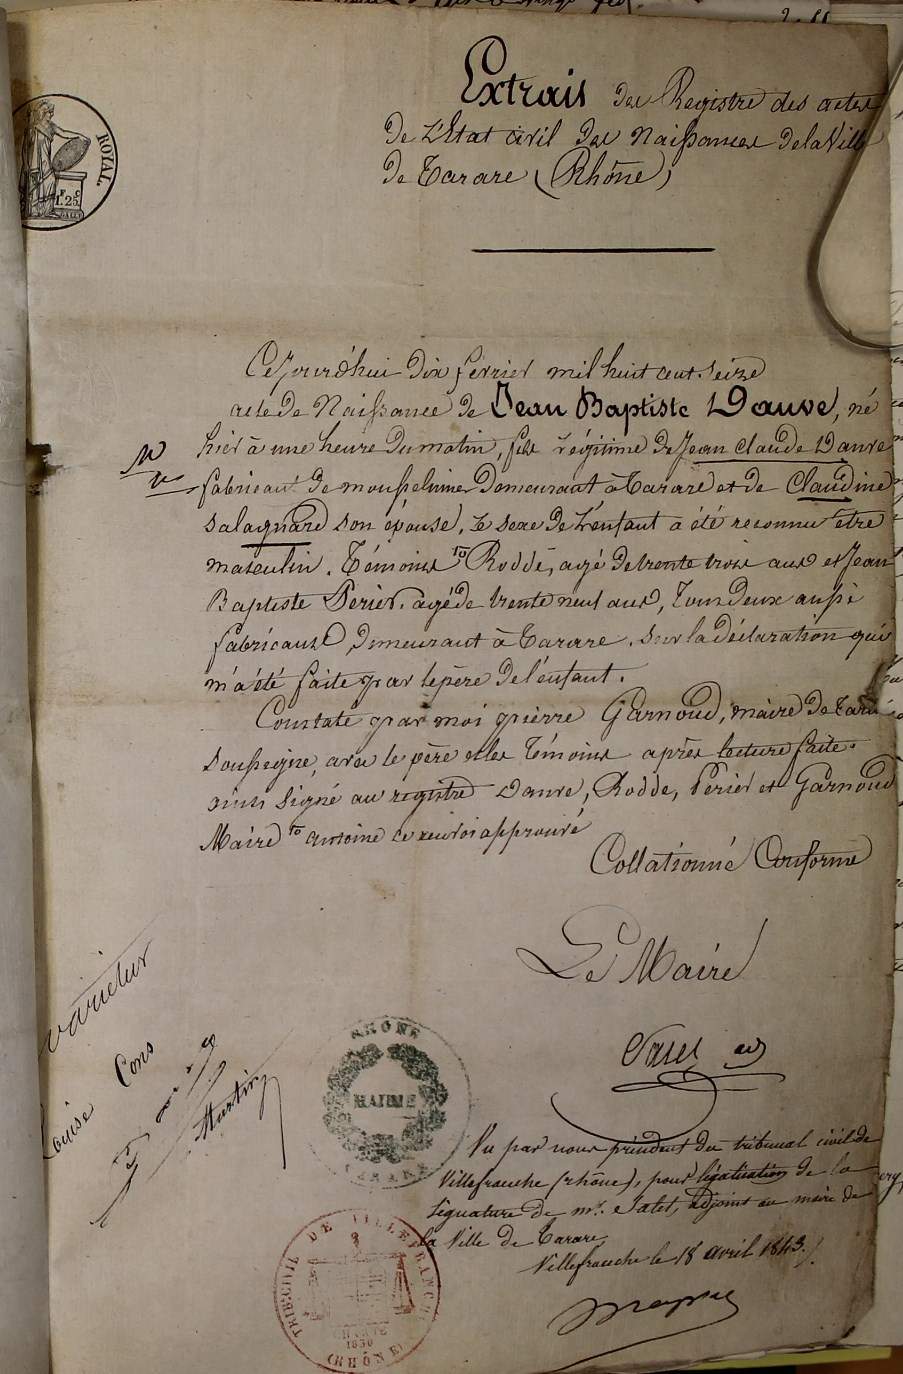 ROYAL.
1.F 25.C
Extrait des Registre des actes
De L'Etat civil des Naissances de la Ville
de Tarare (Rhône)
Ce Jourd'hui dix février mil huit cent seize
acte de Naissance de Jean Baptiste Dauve, né
hier à une heure du matin, fils légitime de Jean Claude Dauve
fabricant de mousselines demeurant à Tarare et de Claudine
Salagnard son épouse, le sexe de l'enfant a été reconnu être
masculin. Témoins Rodde, agé de trente trois ans et Jean
Baptiste Perier, agé de trente neuf ans, tous deux aussi
fabricans, demeurant à Tarare. Sur la déclaration qui
m'a été faite par le père de l'enfant.
Constaté par moi pierre Garnoud, maire de Tarare
soussigné, avec le père et les témoins après lecture faite.
ainsi signé au registre Dauve, Rodde, Perier et Garnoud
Maire to antoine ce renvoi approuvé
Collationné Conforme
Le Maire
RHÔNE
MAIRIE
TARARE
Louise Cons
Martin
Vu par nous président du tribunal civil de
Villefranche (rhône), pour légalisation de la
signature de mr. Salet, adjoint au maire de
la Ville de Tarare
Villefranche le 18 avril 1843.
TRIB. CIVIL DE VILLEFRANCHE
1830
(RHÔNE)